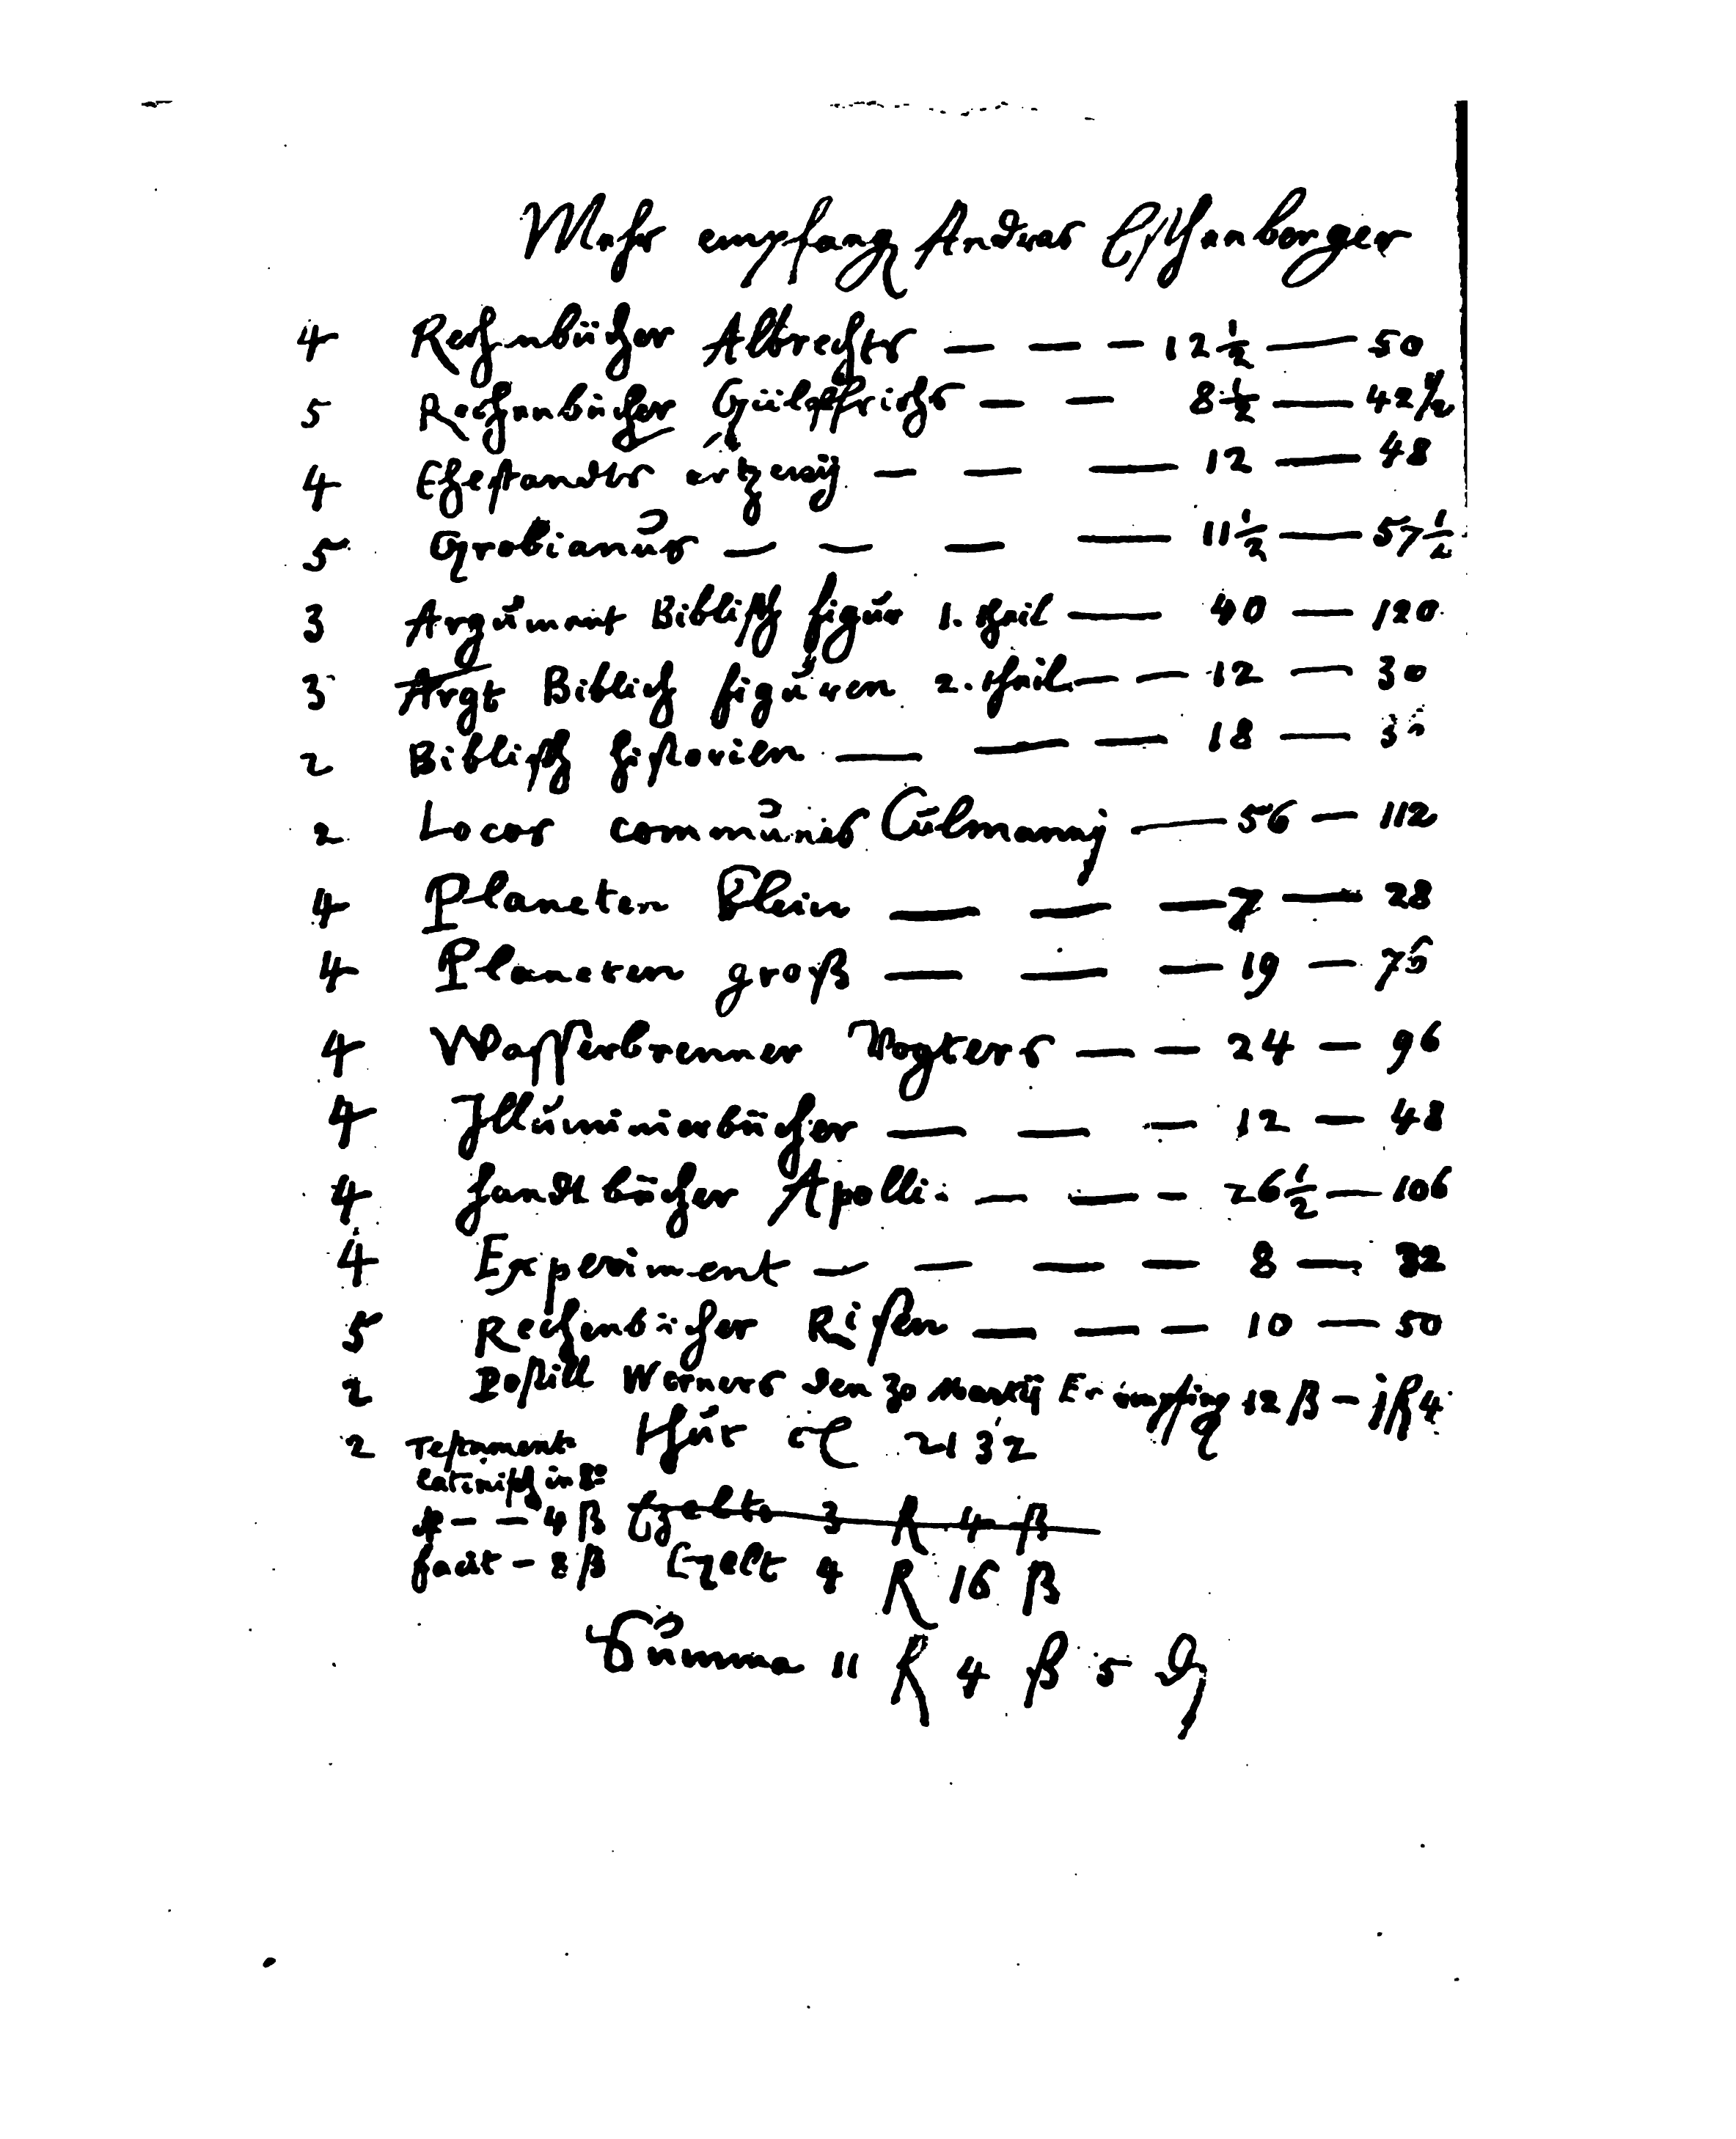 Mehr empfang Andreas Eschenberger
4 Rechnbücher Albrechts — — — 12½ — 50
5 Rechenbücher Gülpfrichs — — 8½ — 42½
4 Ehestandts ärtzeneÿ — — — 12 — 48
5 Grobianus — — — — 11½ — 57½
3 Argument Biblisch figur 1. theil — 40 — 120
3 Argt Biblisch figuren 2. theil — — 12 — 30
2 Biblisch historien — — — 18 — 36
2 Locos communes Culmannj — 56 — 112
4 Planeten klein — — — 7 — 28
4 Planeten groß — — — 19 — 76
4 Wasserbrenner Vogters — — 24 — 96
4 Illuminierbücher — — — 12 — 48
4 handtbücher Apolli. — — — 26½ — 106
4 Experiment — — — — 8 — 32
5 Rechenbücher Risen — — — 10 — 50
2 Postill Werners den 30 Martij Er empfing 12 ß — j fl 4
2 Testament thut 2132
latinisch in 8°
— — 4 ß 3 fl 4 ß
facit — 8 ß Czelt 4 fl 16 ß
Summa 11 fl 4 ß 5 ₰